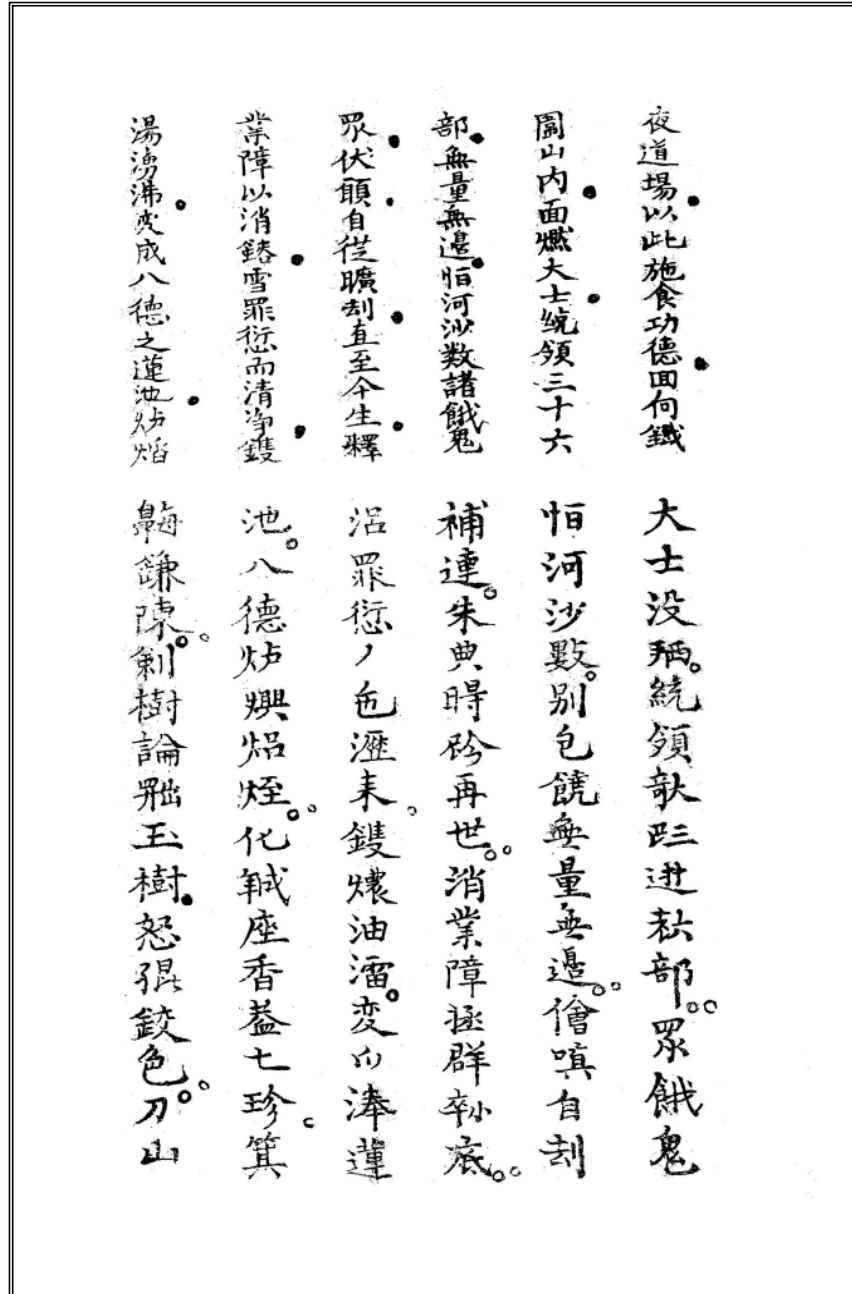 夜道場以此施食功德回向鐵
圍山内面燃大士統領三十六
部無量無邊恒河沙数諸餓鬼
眾伏願自從曠刼直至今生釋
業障以消鎔雪罪愆而清净鑊
湯湧沸変成八德之蓮池炉焰
大士没統領部眾餓鬼
恒河沙數別包饒無量無邉僧嗔自刼
補連朱典時再世消業障拯群底
罪愆包瀝耒鑊油変蓮
池八德炉化座香蓋七珍箕
鎌陳劍樹論𦋦玉樹怒鉸色刀山